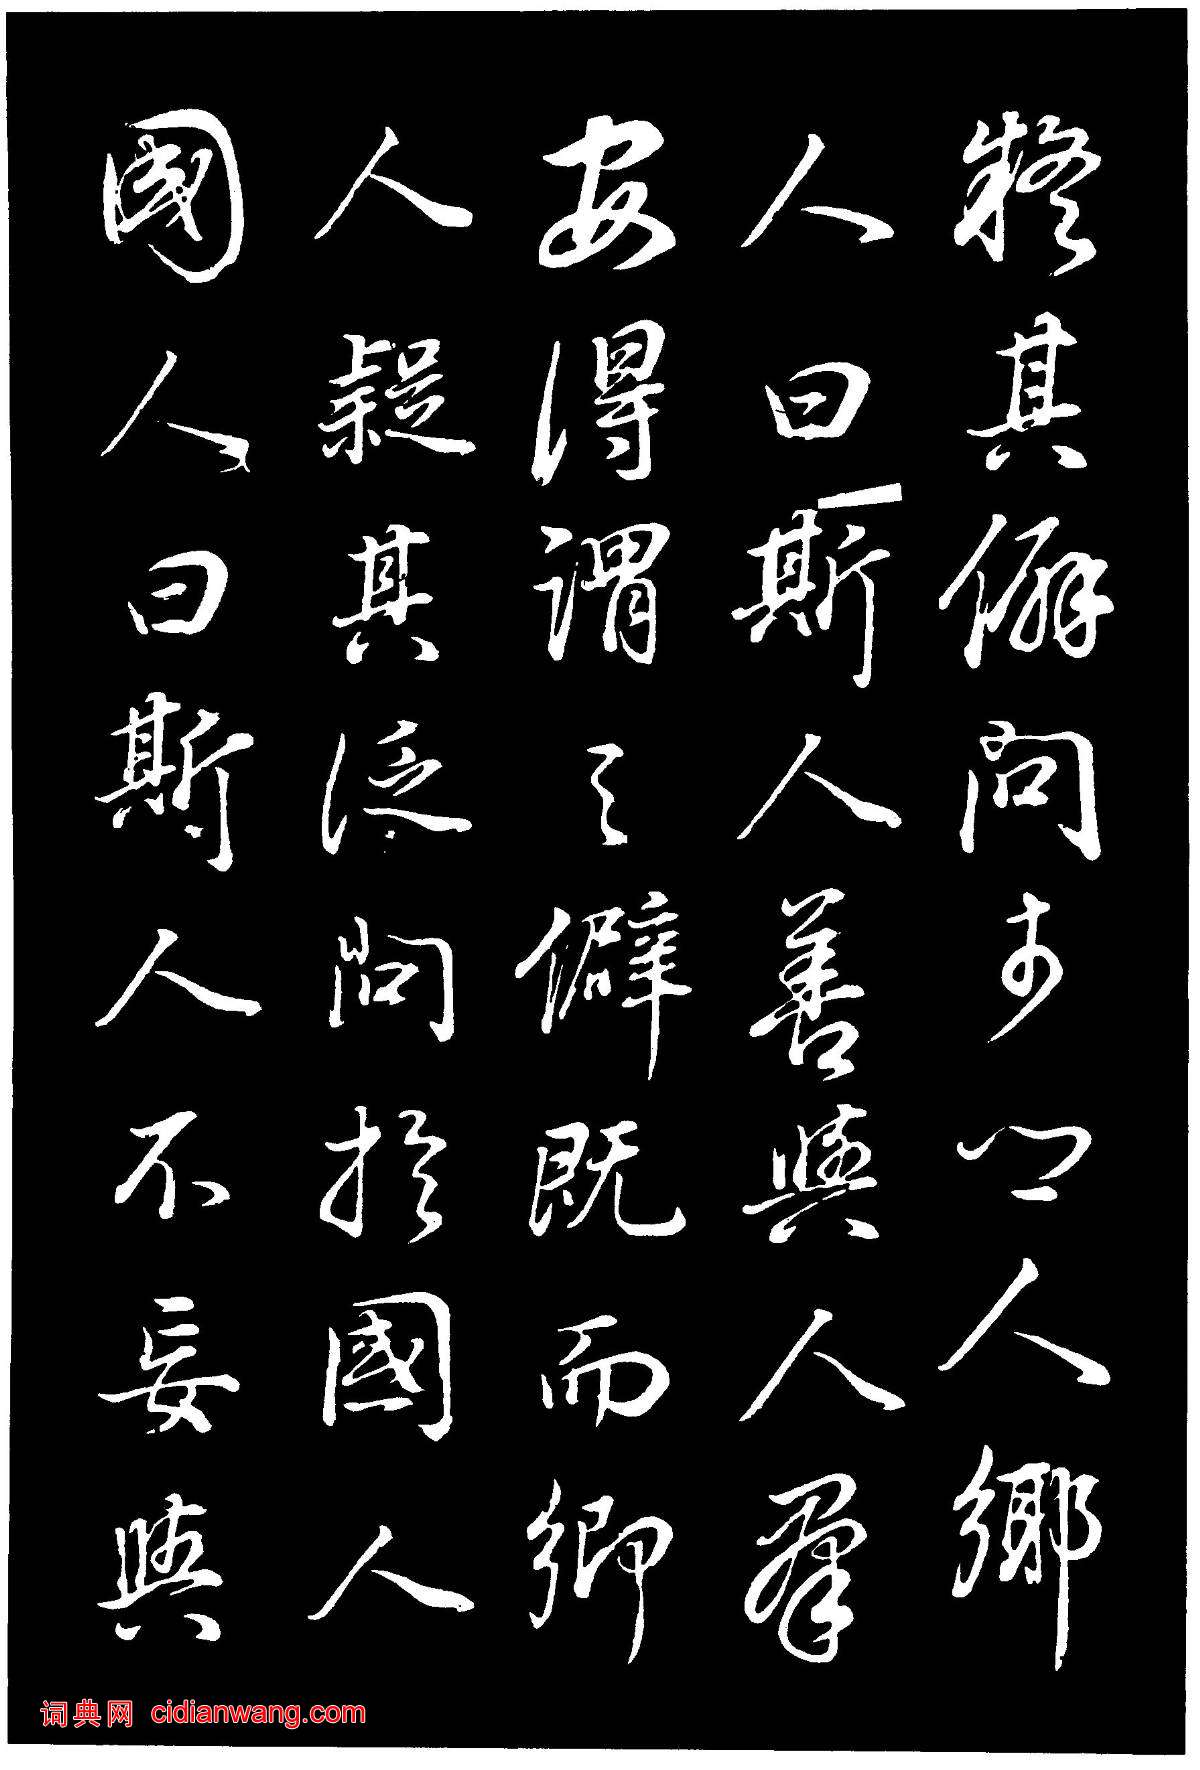 疑其僻問於鄉人鄉
人曰斯人善與人群
安得謂之僻既而鄉
人疑其泛問於國人
國人曰斯人不妄與
词典网 cidianwang.com